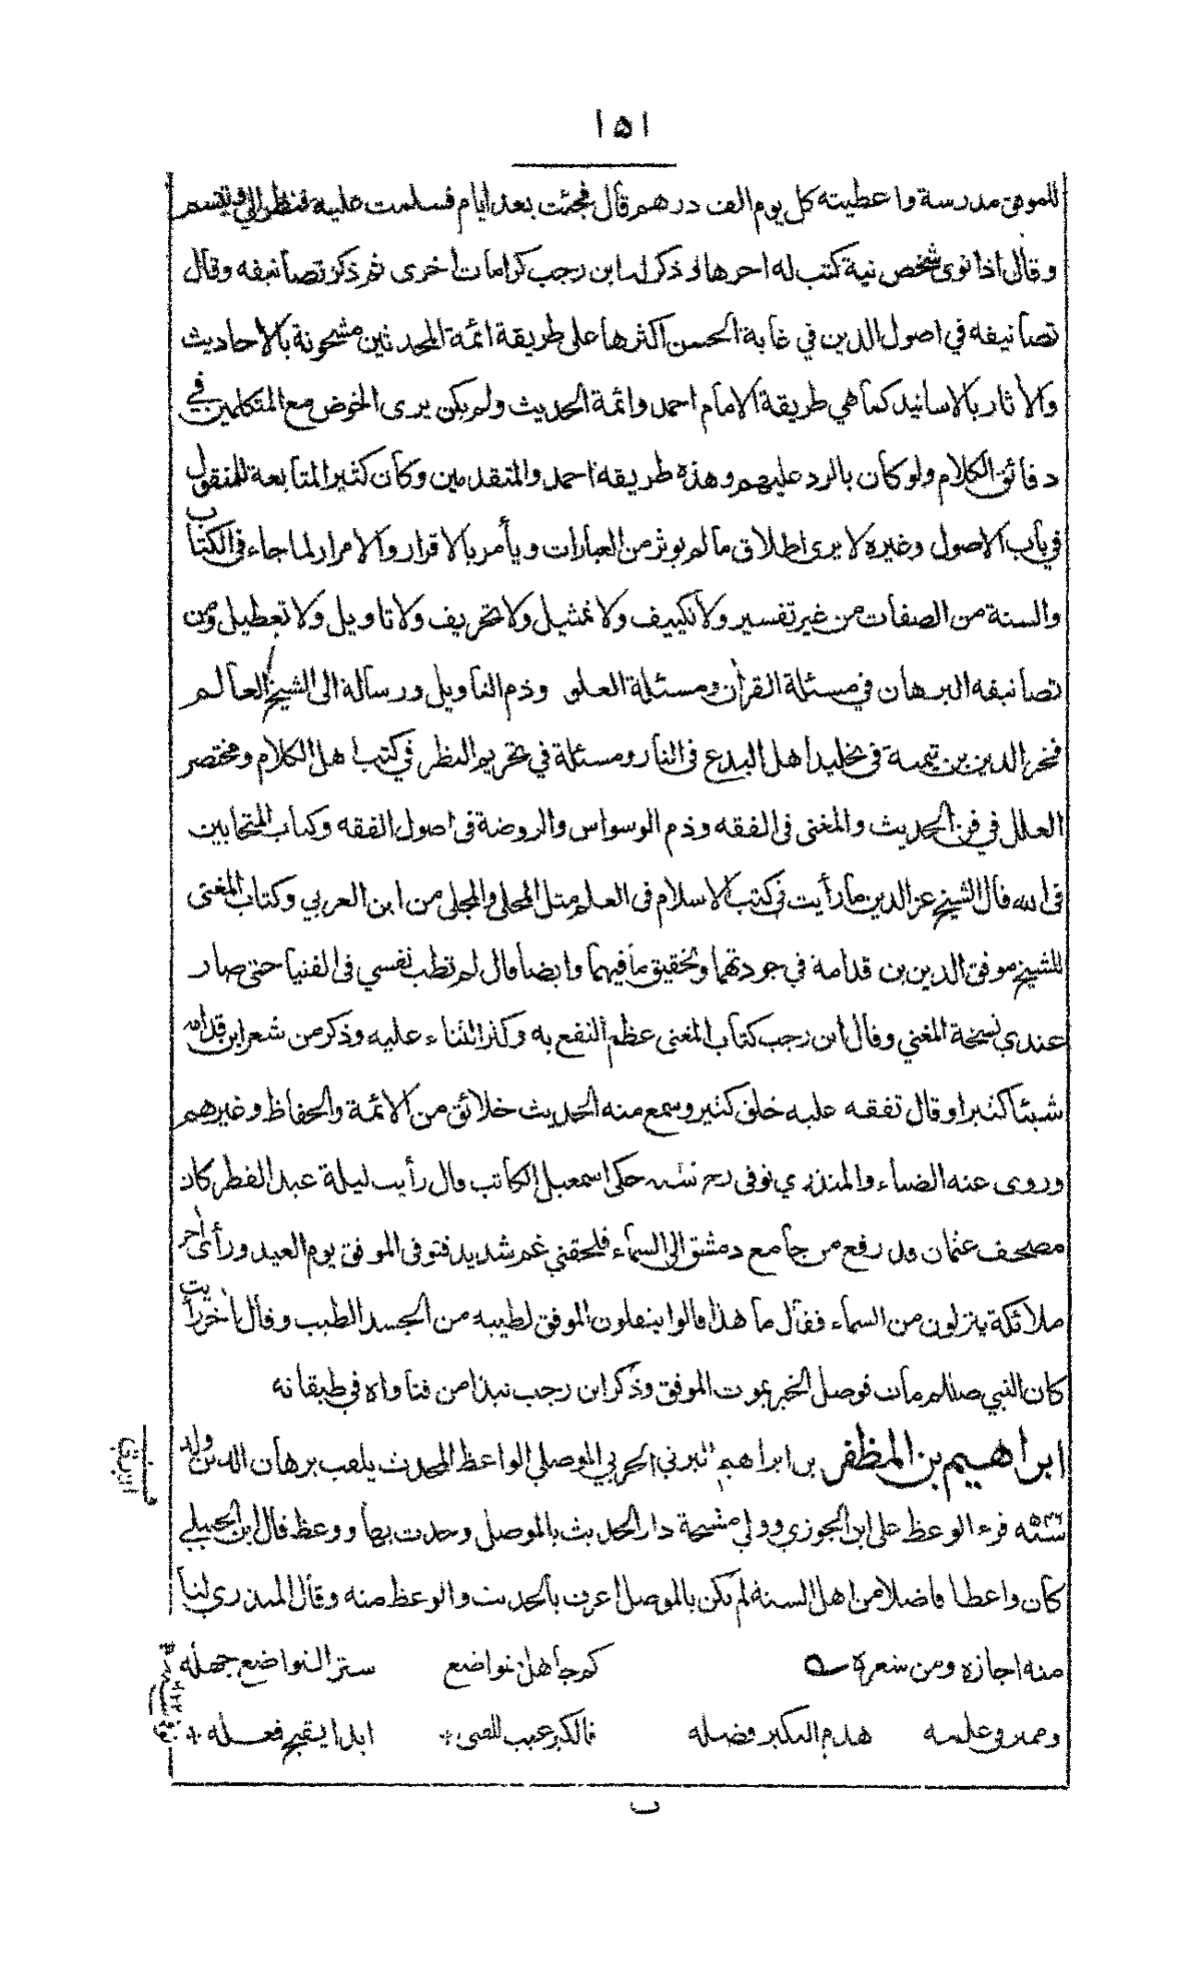 ١٥١
للموفق مدرسة واعطيته كل يوم الف درهم قال فجئت بعد ايام فسلمت عليه فنظر الي وتبسم
وقال اذا نوى شخص نية كتب له اجرها وذكر له ابن رجب كرامات اخرى ثم ذكر تصانيفه وقال
تصانيفه في اصول الدين في غاية الحسن اكثرها على طريقة ائمة المحدثين مشحونة بالاحاديث
والاثار بالاسانيد كما هي طريقة الامام احمد وائمة الحديث ولم يكن يرى الخوض مع المتكلمين في
دقائق الكلام ولو كان بالرد عليهم وهذه طريقة احمد والمتقدمين وكان كثير المتابعة للمنقول
في باب الاصول وغيره لا يرى اطلاق ما لم يوثر من العبارات ويأمر بالاقرار والامرار لما جاء في الكتاب
والسنة من الصفات من غير تفسير ولا تكييف ولا تمثيل ولا تحريف ولا تاويل ولا تعطيل ومن
تصانيفه البرهان في مسئلة القرأن ومسئلة العلو وذم التاويل ورسالة الى الشيخ العالم
فخر الدين بن تيمية في تخليد اهل البدع في النار ومسئلة في تحريم النظر في كتب اهل الكلام ومختصر
العلل في فن الحديث والمغنى فى الفقه وذم الوسواس والروضة فى اصول الفقه وكتاب المتحابين
فى الله قال الشيخ عز الدين ما رأيت في كتب الاسلام فى العلم مثل المحلى والمجلى من ابن العربي وكتاب المغنى
للشيخ موفق الدين بن قدامة في جودتهما وتحقيق ما فيهما وايضا قال لم تطب نفسي فى الفتيا حتى صار
عندي نسخة المغني وقال ابن رجب كتاب المغنى عظم النفع به وكثر الثناء عليه وذكر من شعر ابن قدامه
شيئا كثيرا وقال تفقه عليه خلق كثير وسمع منه الحديث خلائق من الائمة والحفاظ وغيرهم
وروى عنه الضياء والمنذري توفى رح حكى اسمعيل الكاتب قال رأيت ليلة عيد الفطر كان
مصحف عثمان قد رفع من جامع دمشق الى السماء فلحقني غم شديد فتوفى الموفق يوم العيد ورأى احر
ملائكة ينزلون من السماء فقال ما هذا قالوا ينقلون الموفق لطيبه من الجسد الطيب وقال اخر رأيت
كان النبي صللم مات فوصل الخبر بموت الموفق وذكر ابن رجب نبذا من فتاواه في طبقاته
ابراهيم بن المظفر بن ابراهيم البرني الحربي الموصلي الواعظ المحدث يلقب برهان الدين ولد
سنة ٥٤٦ قرء الوعظ على ابن الجوزي وولي مشيخة دار الحديث بالموصل وحدث بها ووعظ قال ابن الحنبلي
كان واعظا فاضلا من اهل السنة لم يكن بالموصل اعرف بالحديث والوعظ منه وقال المنذري لنا
منه اجازة ومن شعره كم جاهل متواضع ستر التواضع جهله
علمه هدم التكبر فضله فالكبر عيب للفتى * ابدا يقبح فعله *
ب